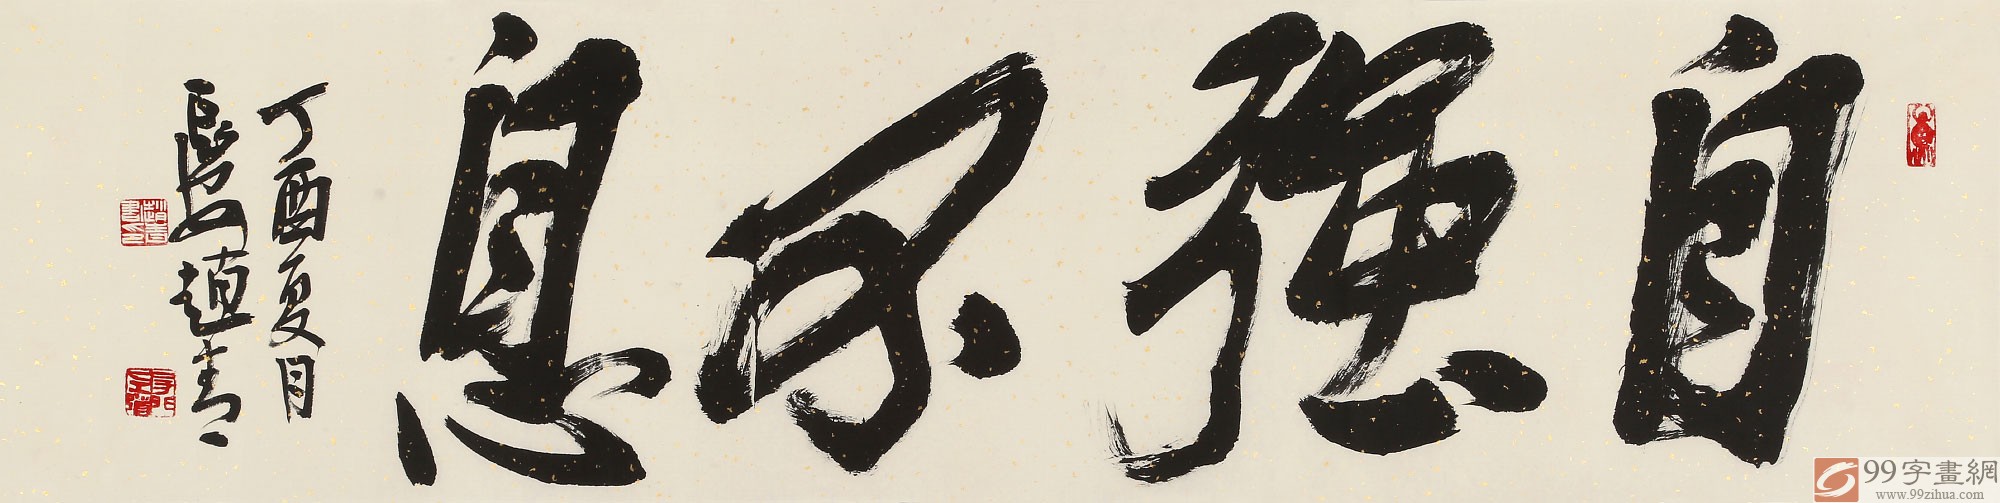 自强不息
丁酉夏月
長安趙青
99字畫網
www.99zihua.com